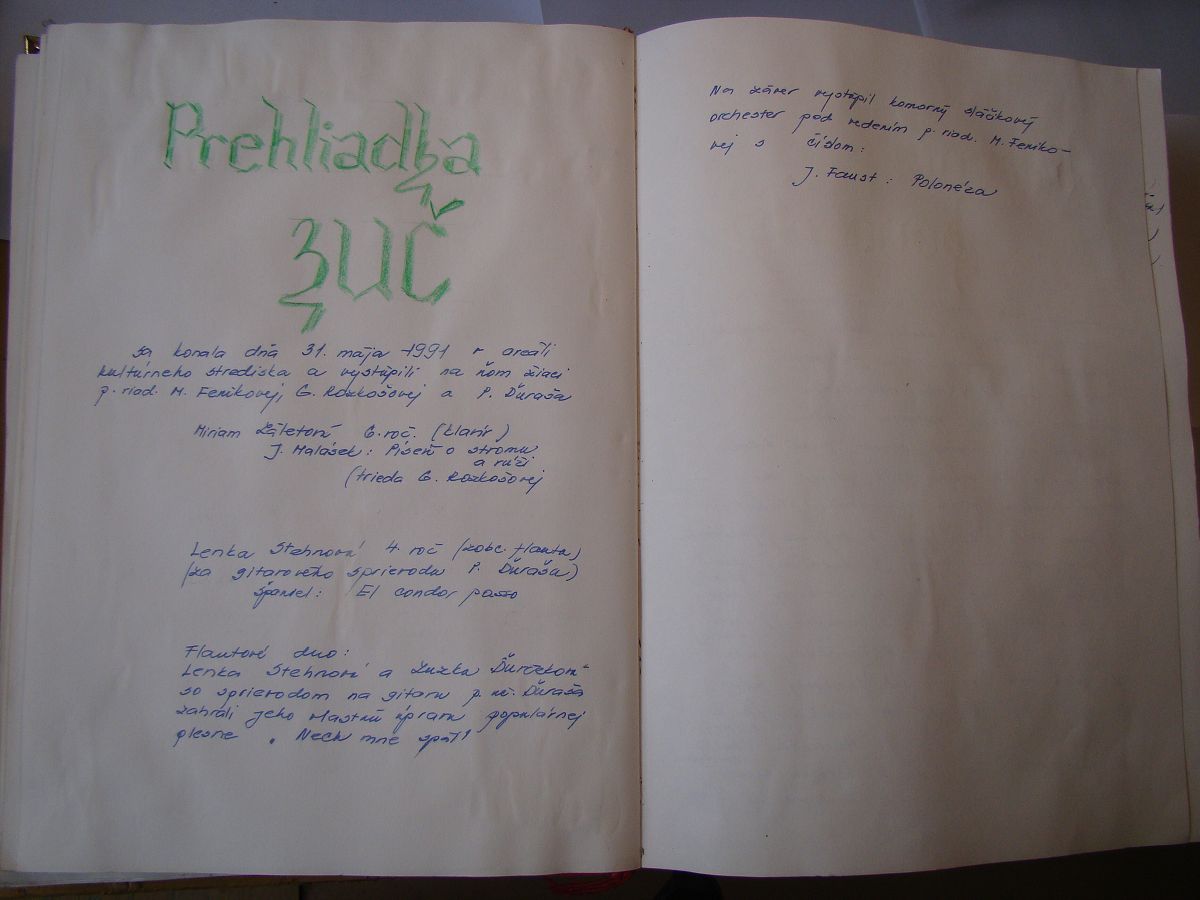 Prehliadka
ZUČ
sa konala dňa 31. mája 1991 v areáli
kultúrneho strediska a vystúpili na ňom žiaci
p. riad. M. Feníkovej, G. Rozkošovej a P. Ďuraša
Miriam Záletová 6. roč. (klavír)
J. Malásek: Píseň o stromu
a růži
(trieda G. Rozkošovej
Lenka Stehnová 4. roč (zobc. flauta)
(za gitarového sprievodu P. Ďuraša)
Španiel: El condor passo
Flautové duo:
Lenka Stehnová a Zuzka Ďurčeková
so sprievodom na gitaru p. uč. Ďuraša
zahrali jeho vlastnú úpravu populárnej
piesne „Nech mne späť"
Na záver vystúpil komorný sláčikový
orchester pod vedením p. riad. M. Feníko-
vej s číslom:
J. Faust: Polonéza